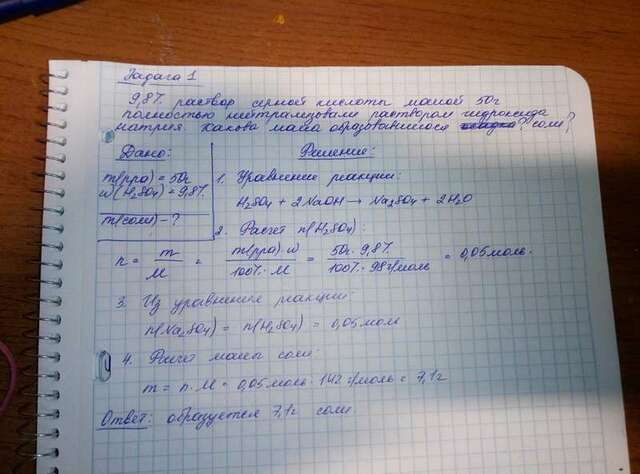 Задача 1
9,8% раствор серной кислоты массой 50г
полностью нейтрализовали раствором гидроксида
натрия. Какова масса образовавшейся соли?
Дано:
m(р-ра) = 50г
w(H₂SO₄) = 9,8%
m(соли) - ?
Решение:
1. Уравнение реакции:
H₂SO₄ + 2NaOH → Na₂SO₄ + 2H₂O
2. Расчет n(H₂SO₄):
n = m/M = m(р-ра)·w/100%·M = 50г·9,8%/100%·98г/моль = 0,05моль.
3. Из уравнения реакции:
n(Na₂SO₄) = n(H₂SO₄) = 0,05моль
4. Расчет массы соли:
m = n·M = 0,05моль·142г/моль = 7,1г
Ответ: образуется 7,1г соли.